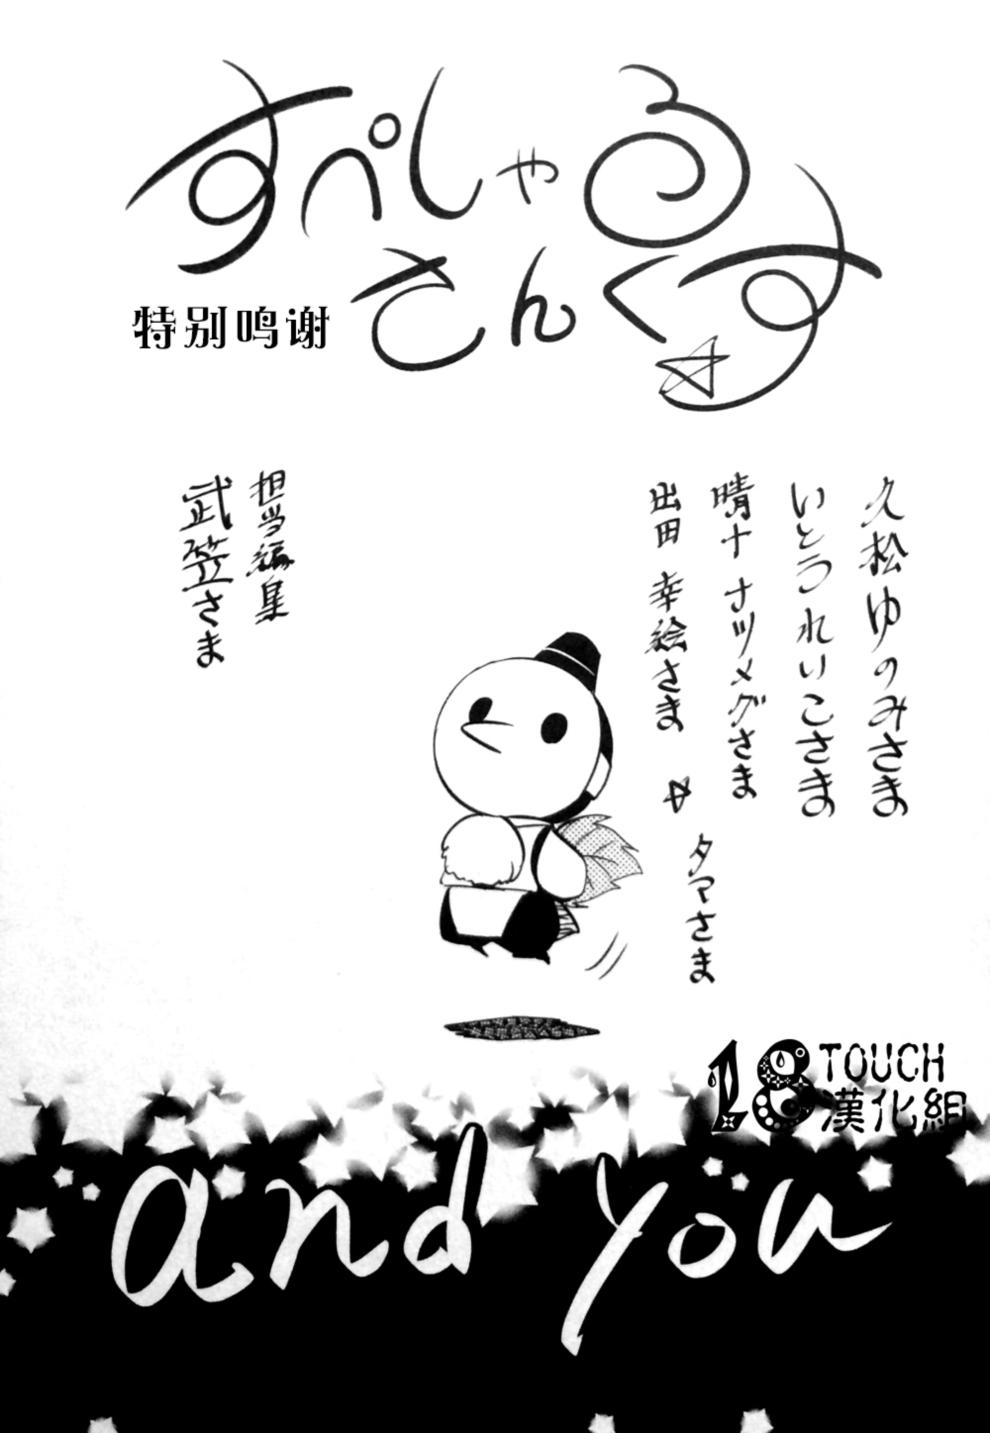 すぺしゃる
さんくす☆
特别鸣谢
久松ゆのみさま
いとうれいこさま
晴十ナツメグさま
出田 幸絵さま
☆タマさま
担当編集
武笠さま
18 TOUCH
漢化組
and you